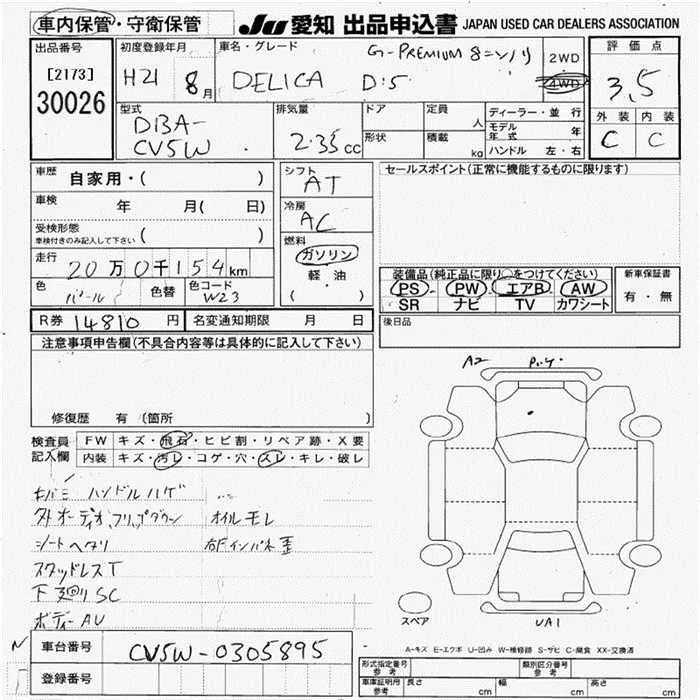 車内保管・守衛保管
JU 愛知 出品申込書 JAPAN USED CAR DEALERS ASSOCIATION
出品番号
[2173]
30026
初度登録年月
H21 8月
車名・グレード
G-PREMIUM 8ニンノリ
DELICA D:5
2WD
4WD
評価点
3,5
外装 内装
C C
型式
DBA-
CV5W
排気量
2.35cc
ドア
形状
定員
人
積載
kg
ディーラー・並行
モデル年式 年
ハンドル 左・右
車歴 自家用・( )
車検 年 月( 日)
受検形態
車検付きのみ記入して下さい ( )
走行 20万0千154km
色 パール 色替 色コード W23
シフト
AT
冷房
AC
燃料
ガソリン
軽油
( )
セールスポイント(正常に機能するものに限ります)
装備品(純正品に限り○をつけてください)
PS PW エアB AW
SR ナビ TV カワシート
新車保証書
有・無
R券 14810円 名変通知期限 月 日
後日品
注意事項申告欄(不具合内容等は具体的に記入して下さい)
修復歴 有 (箇所 )
検査員記入欄
FW キズ・飛石・ヒビ割・リペア跡・X要
内装 キズ・汚レ・コゲ・穴・スレ・キレ・破レ
キバミ ハンドルハゲ
外オーディオ,フリップダウン オイルモレ
シートヘタリ 右Fインパネ歪
スタッドレスT
下廻りSC
ボディーAU
A2
UA1
スペア
A-キズ E-エクボ U-凹み W-補修跡 S-サビ C-腐食 XX-交換済
車台番号 CV5W-0305895
登録番号
形式指定番号 参考 類別区分番号 参考
車庫証明用 参考 長さ cm 幅 cm 高さ cm